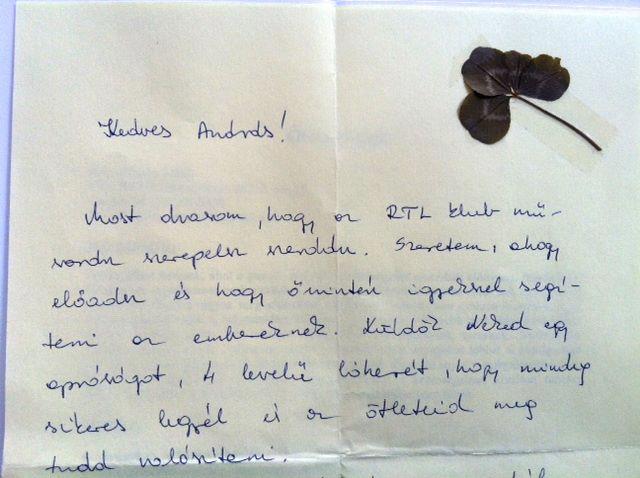 Kedves András!
Most olvasom, hogy az RTL klub mű-
során szerepelsz szerdán. Szeretem, ahogy
előadsz és hogy őszintén igyekszel segí-
teni az embereknek. Küldök Néked egy
apróságot, 4 levelű lóherét, hogy mindig
sikeres legyél és az ötleteid meg
tudd valósítani.